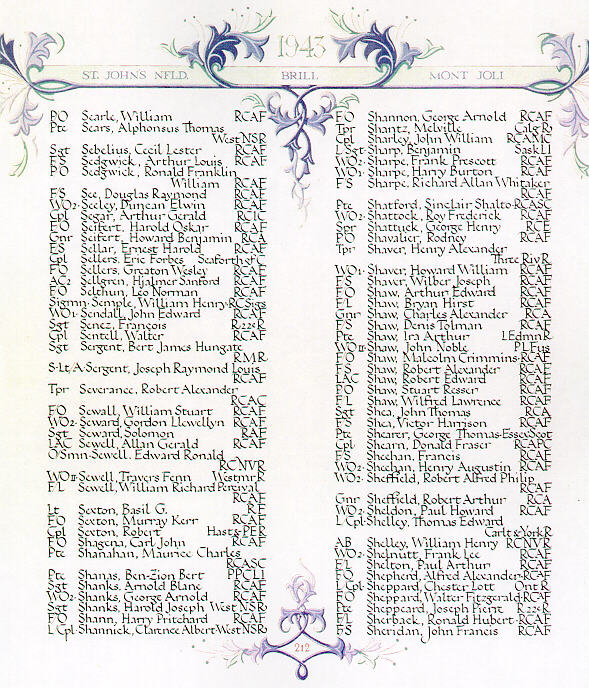 1943
ST. JOHN'S NFLD. BRILL MONT JOLI
PO Searle, William RCAF
Pte Sears, Alphonsus Thomas
West NSR
Sgt Sebelius, Cecil Lester RCAF
FS Sedgwick, Arthur Louis RCAF
PO Sedgwick, Ronald Franklin
William RCAF
FS See, Douglas Raymond RCAF
WO2 Seeley, Duncan Elwin RCAF
Cpl Segar, Arthur Gerald RCIC
FO Seifert, Harold Oskar RCAF
Gnr Seifert, Howard Benjamin RCA
FS Sellar, Ernest Harold RCAF
Cpl Sellers, Eric Forbes SeaforthofC
FO Sellers, Greaton Wesley RCAF
AC2 Sellgren, Hjalmer Sanford RCAF
FO Selthun, Leo Norman RCAF
Sigmn Semple, William Henry RCSigs
WO1 Sendall, John Edward RCAF
Sgt Senez, François R22eR
Cpl Sentell, Walter RCAF
Sgt Sergent, Bert James Hungate
RMR
S-Lt/A Sergent, Joseph Raymond Louis
RCAF
Tpr Severance, Robert Alexander
RCAC
FO Sewall, William Stuart RCAF
WO2 Seward, Gordon Llewellyn RCAF
Sgt Seward, Solomon RAF
LAC Sewell, Allan Gerald RCAF
O'Smn Sewell, Edward Ronald
RCNVR
WOII Sewell, Travers Fenn WestmrR
FL Sewell, William Richard Percival
RCAF
Lt Sexton, Basil G. RE
FO Sexton, Murray Kerr RCAF
Cpl Sexton, Robert Hast&PER
FO Shagena, Carl John RCAF
Pte Shanahan, Maurice Charles
RCASC
Pte Shanas, Ben-Zion Bert PPCLI
Sgt Shanks, Arnold Blane RCAF
WO2 Shanks, George Arnold RCAF
Sgt Shanks, Harold Joseph West NSR
FO Shann, Harry Pritchard RCAF
L Cpl Shannick, Clarence Albert West NSR
FO Shannon, George Arnold RCAF
Tpr Shantz, Melville CalgR
Cpl Sharley, John William RCAMC
L Sgt Sharp, Benjamin SaskLI
WO2 Sharpe, Frank Prescott RCAF
WO1 Sharpe, Harry Burton RCAF
FS Sharpe, Richard Allan Whitaker
RCAF
Pte Shatford, Sinclair Shalto RCASC
WO2 Shattock, Roy Frederick RCAF
Spr Shattuck, George Henry RCE
PO Shavalier, Rodney RCAF
Tpr Shaver, Henry Alexander
Three RivR
WO1 Shaver, Howard William RCAF
FS Shaver, Wilber Joseph RCAF
FO Shaw, Arthur Edward RCAF
F/L Shaw, Bryan Hirst RCAF
Gnr Shaw, Charles Alexander RCA
FS Shaw, Denis Tolman RCAF
Pte Shaw, Ira Arthur LEdmnR
WOII Shaw, John Noble PLFus
FO Shaw, Malcolm Crimmins RCAF
FS Shaw, Robert Alexander RCAF
LAC Shaw, Robert Edward RCAF
PO Shaw, Stuart Resser RCAF
FL Shaw, Wilfred Lawrence RCAF
Sgt Shea, John Thomas RCA
FS Shea, Victor Harrison RCAF
Pte Shearer, George Thomas EssexScot
Cpl Shearn, Donald Fraser RCAPC
FS Sheehan, Francis RCAF
WO2 Sheehan, Henry Augustin RCAF
WO2 Sheffield, Robert Alfred Philip
RCAF
Gnr Sheffield, Robert Arthur RCA
WO2 Sheldon, Paul Howard RCAF
L Cpl Shelley, Thomas Edward
Carlt&YorkR
AB Shelley, William Henry RCNVR
WO2 Shelnutt, Frank Lee RCAF
FL Shelton, Paul Arthur RCAF
FO Shepherd, Alfred Alexander RCAF
L Cpl Sheppard, Chester Lott OntR
FO Sheppard, Walter Fitzgerald RCAF
Pte Sheppeard, Joseph Pierre R22eR
F/L Sherback, Ronald Hubert RCAF
FS Sheridan, John Francis RCAF
212